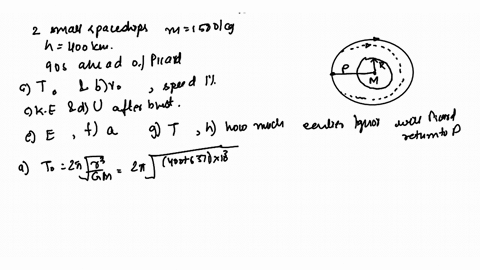 2 small spaceships m = 1500 kg
h = 400 km.
90s ahead of Picard
a) T₀ & b) v₀ , speed 1%
c) K.E & d) U after burst.
e) E , f) a g) T , h) how much earlier Igor was Picard
return to P
a) T₀ = 2π √(r³/GM) = 2π √(400+6371)×10³
P
R
M